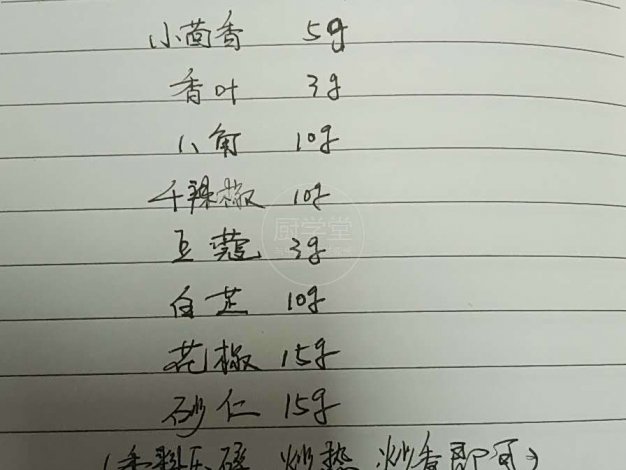 小茴香 5g
香叶 3g
八角 10g
干辣椒 10g
厨学堂
豆蔻 3g
白芷 10g
花椒 15g
砂仁 15g
(香料压碎 炒热 炒香即可)